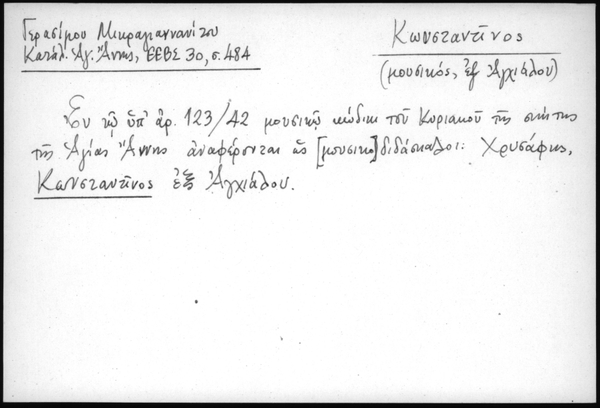 Γερασίμου Μικραγιαννανίτου
Κατάλ. Ἁγ. Ἄννης, ΕΕΒΣ 30, σ. 484
Κωνσταντῖνος
(μουσικός, ἐξ Ἀγχιάλου)
Ἐν τῷ ὑπ' ἀρ. 123/42 μουσικῷ κώδικι τοῦ Κυριακοῦ τῆς σκήτης
τῆς Ἁγίας Ἄννης ἀναφέρονται ὡς [μουσικο]διδάσκαλοι: Χρυσάφης,
Κωνσταντῖνος ἐξ Ἀγχιάλου.